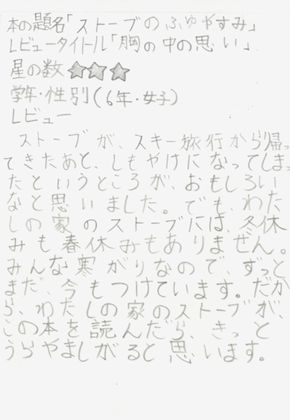 本の題名「ストーブのふゆやすみ」
レビュータイトル「胸の中の思い」
星の数★★★
学年・性別(6年・女子)
レビュー
ストーブが、スキー旅行から帰っ
てきたあと、しもやけになってしまっ
たというところが、おもしろい
なと思いました。でも、わた
しの家のストーブには、冬休
みも春休みもありません。
みんな寒がりなので、ずっと
まだ、今もつけています。だか
ら、わたしの家のストーブが、
この本を読んだら、きっと
うらやましがると思います。